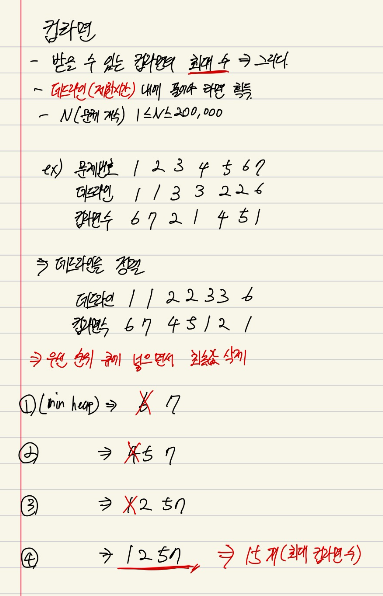 컵라면
- 받을 수 있는 컵라면의 최대 수 ⇒ 그리디
- 데드라인(제한시간) 내에 풀어야 라면 획득
- N(문제 개수) 1≤N≤200,000
ex) 문제번호 1 2 3 4 5 6 7
데드라인 1 1 3 3 2 2 6
컵라면수 6 7 2 1 4 5 1
⇒ 데드라인을 정렬
데드라인 1 1 2 2 3 3 6
컵라면수 6 7 4 5 1 2 1
⇒ 우선 순위 큐에 넣으면서 최솟값 삭제
① (min heap) ⇒ 6 7
② ⇒ 4 5 7
③ ⇒ 1 2 5 7
④ ⇒ 1 2 5 7 ⇒ 15개(최대 컵라면 수)